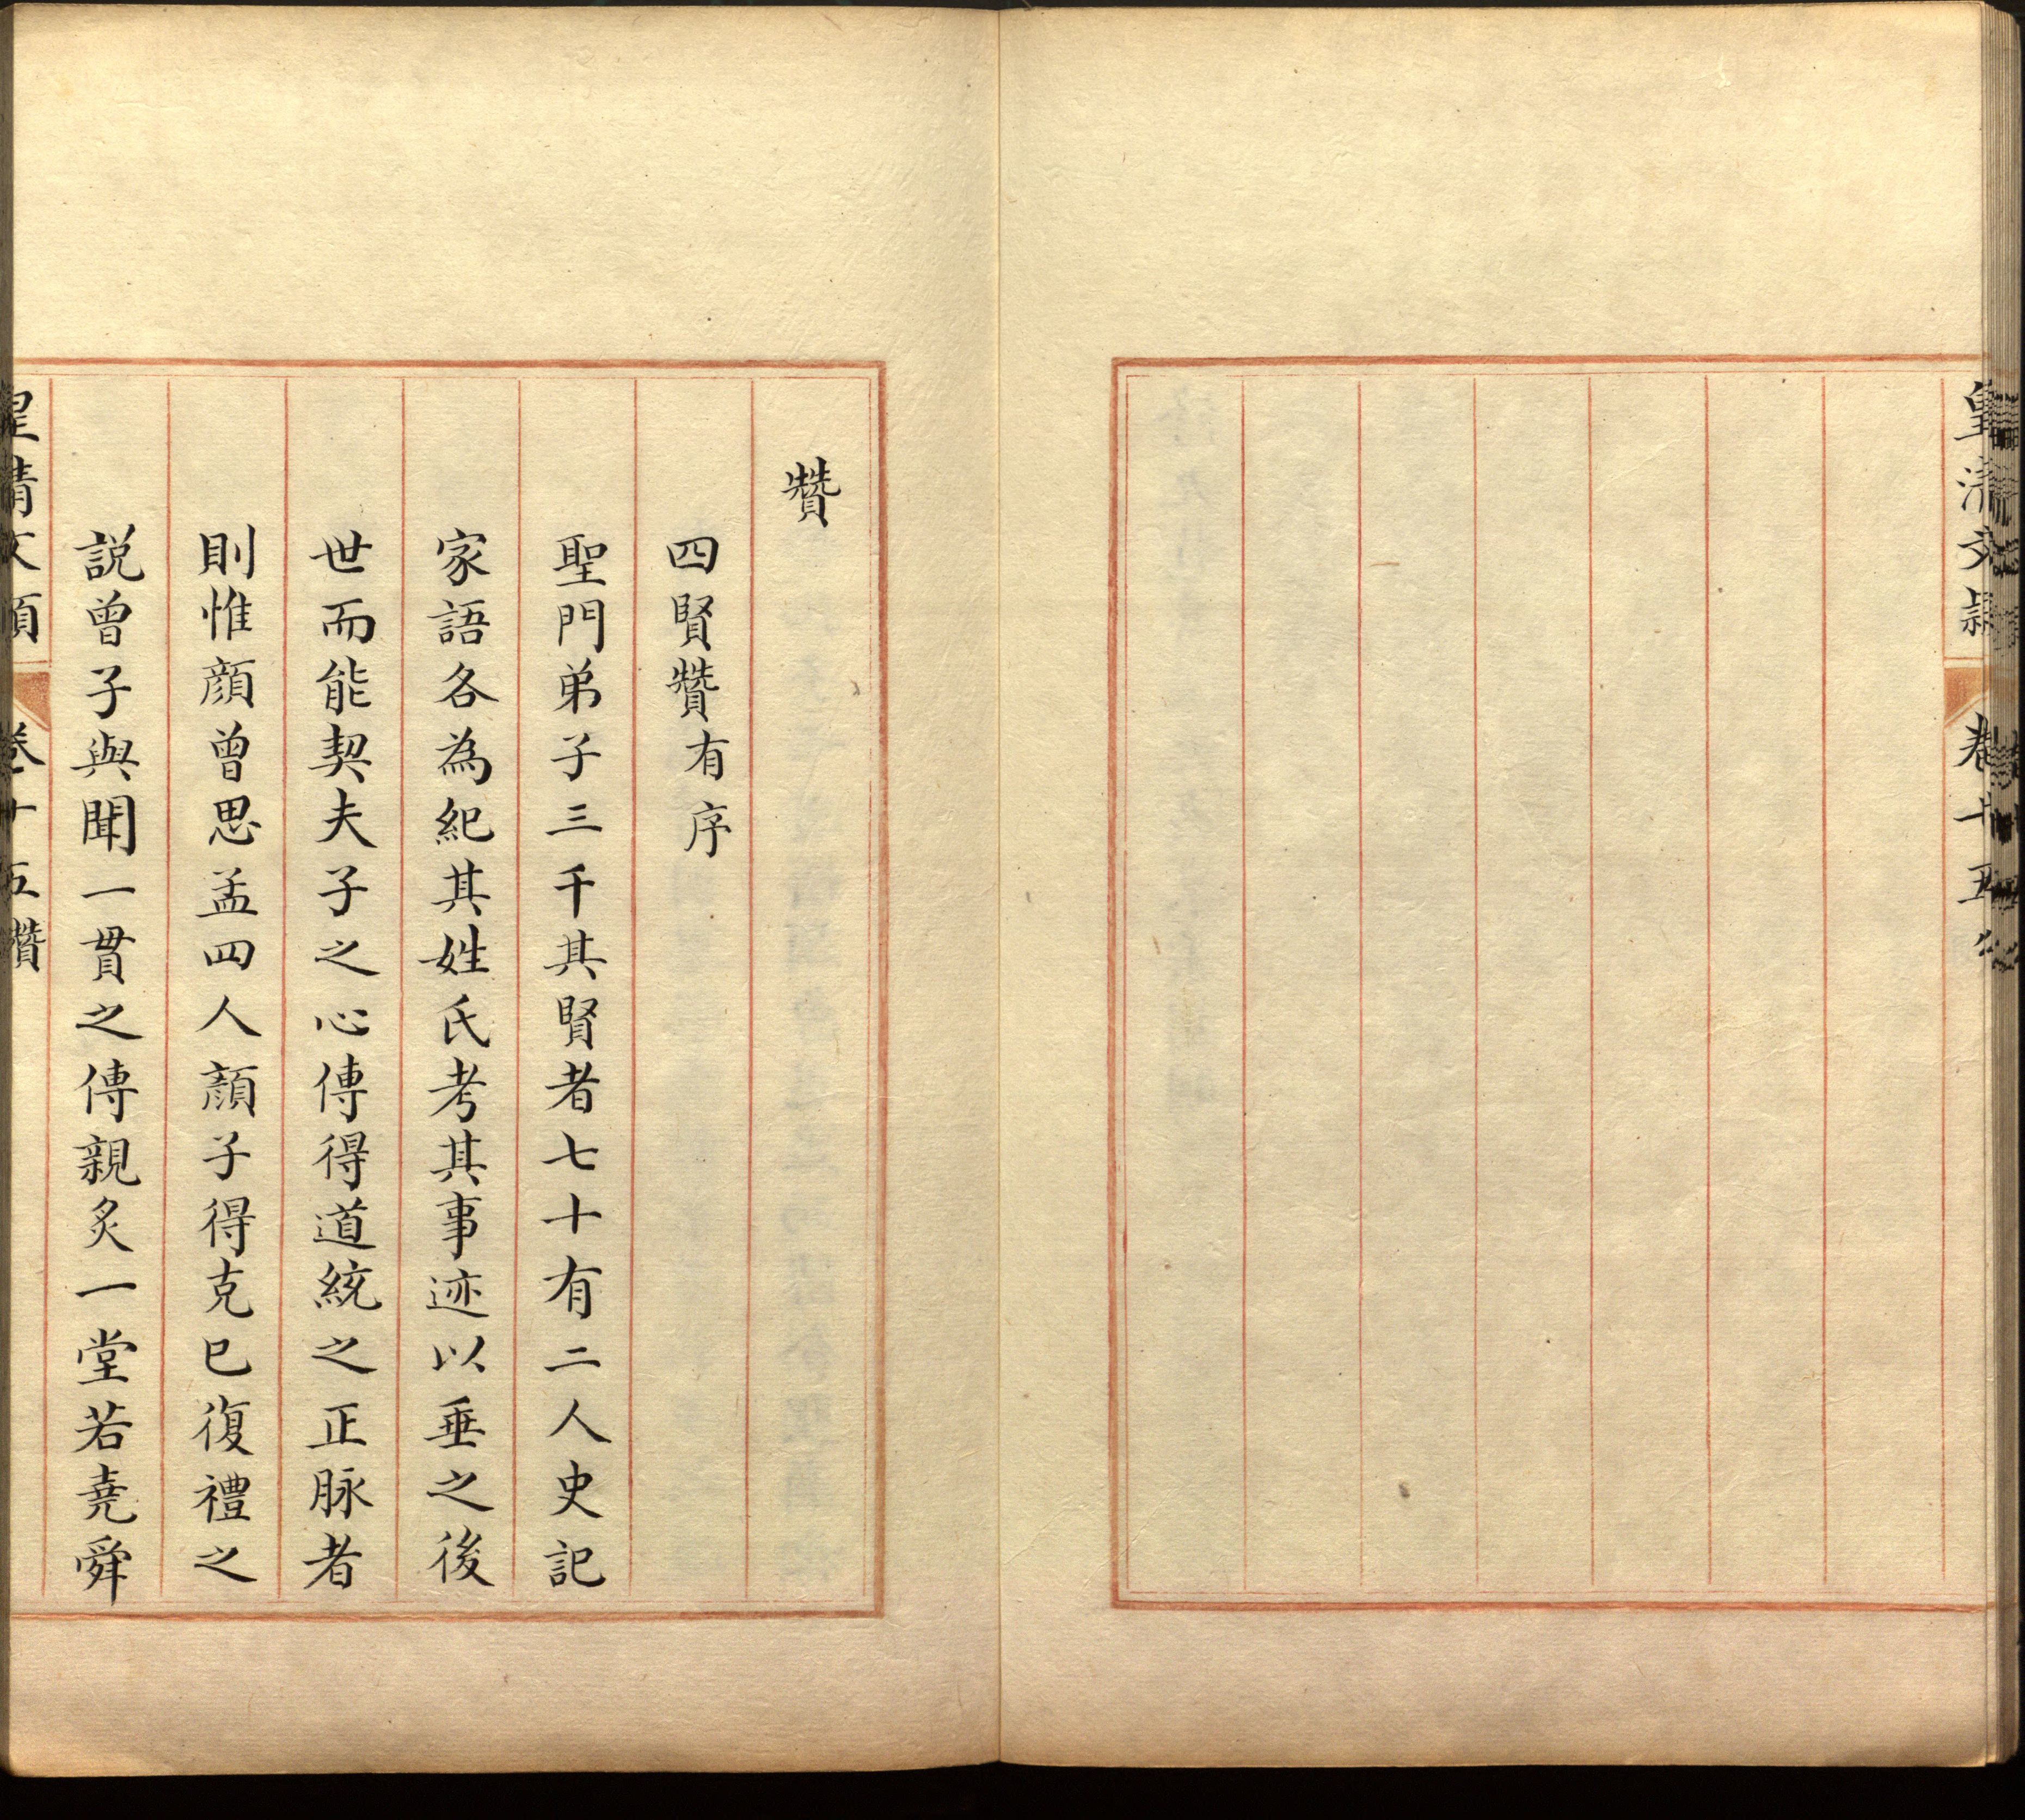 皇清文穎 卷十五
贊
四賢贊有序
聖門弟子三千其賢者七十有二人史記
家語各為紀其姓氏考其事迹以垂之後
世而能契夫子之心傳得道統之正脉者
則惟顏曾思孟四人顏子得克已復禮之
説曾子與聞一貫之傳親炙一堂若堯舜
皇清文穎 卷十五贊